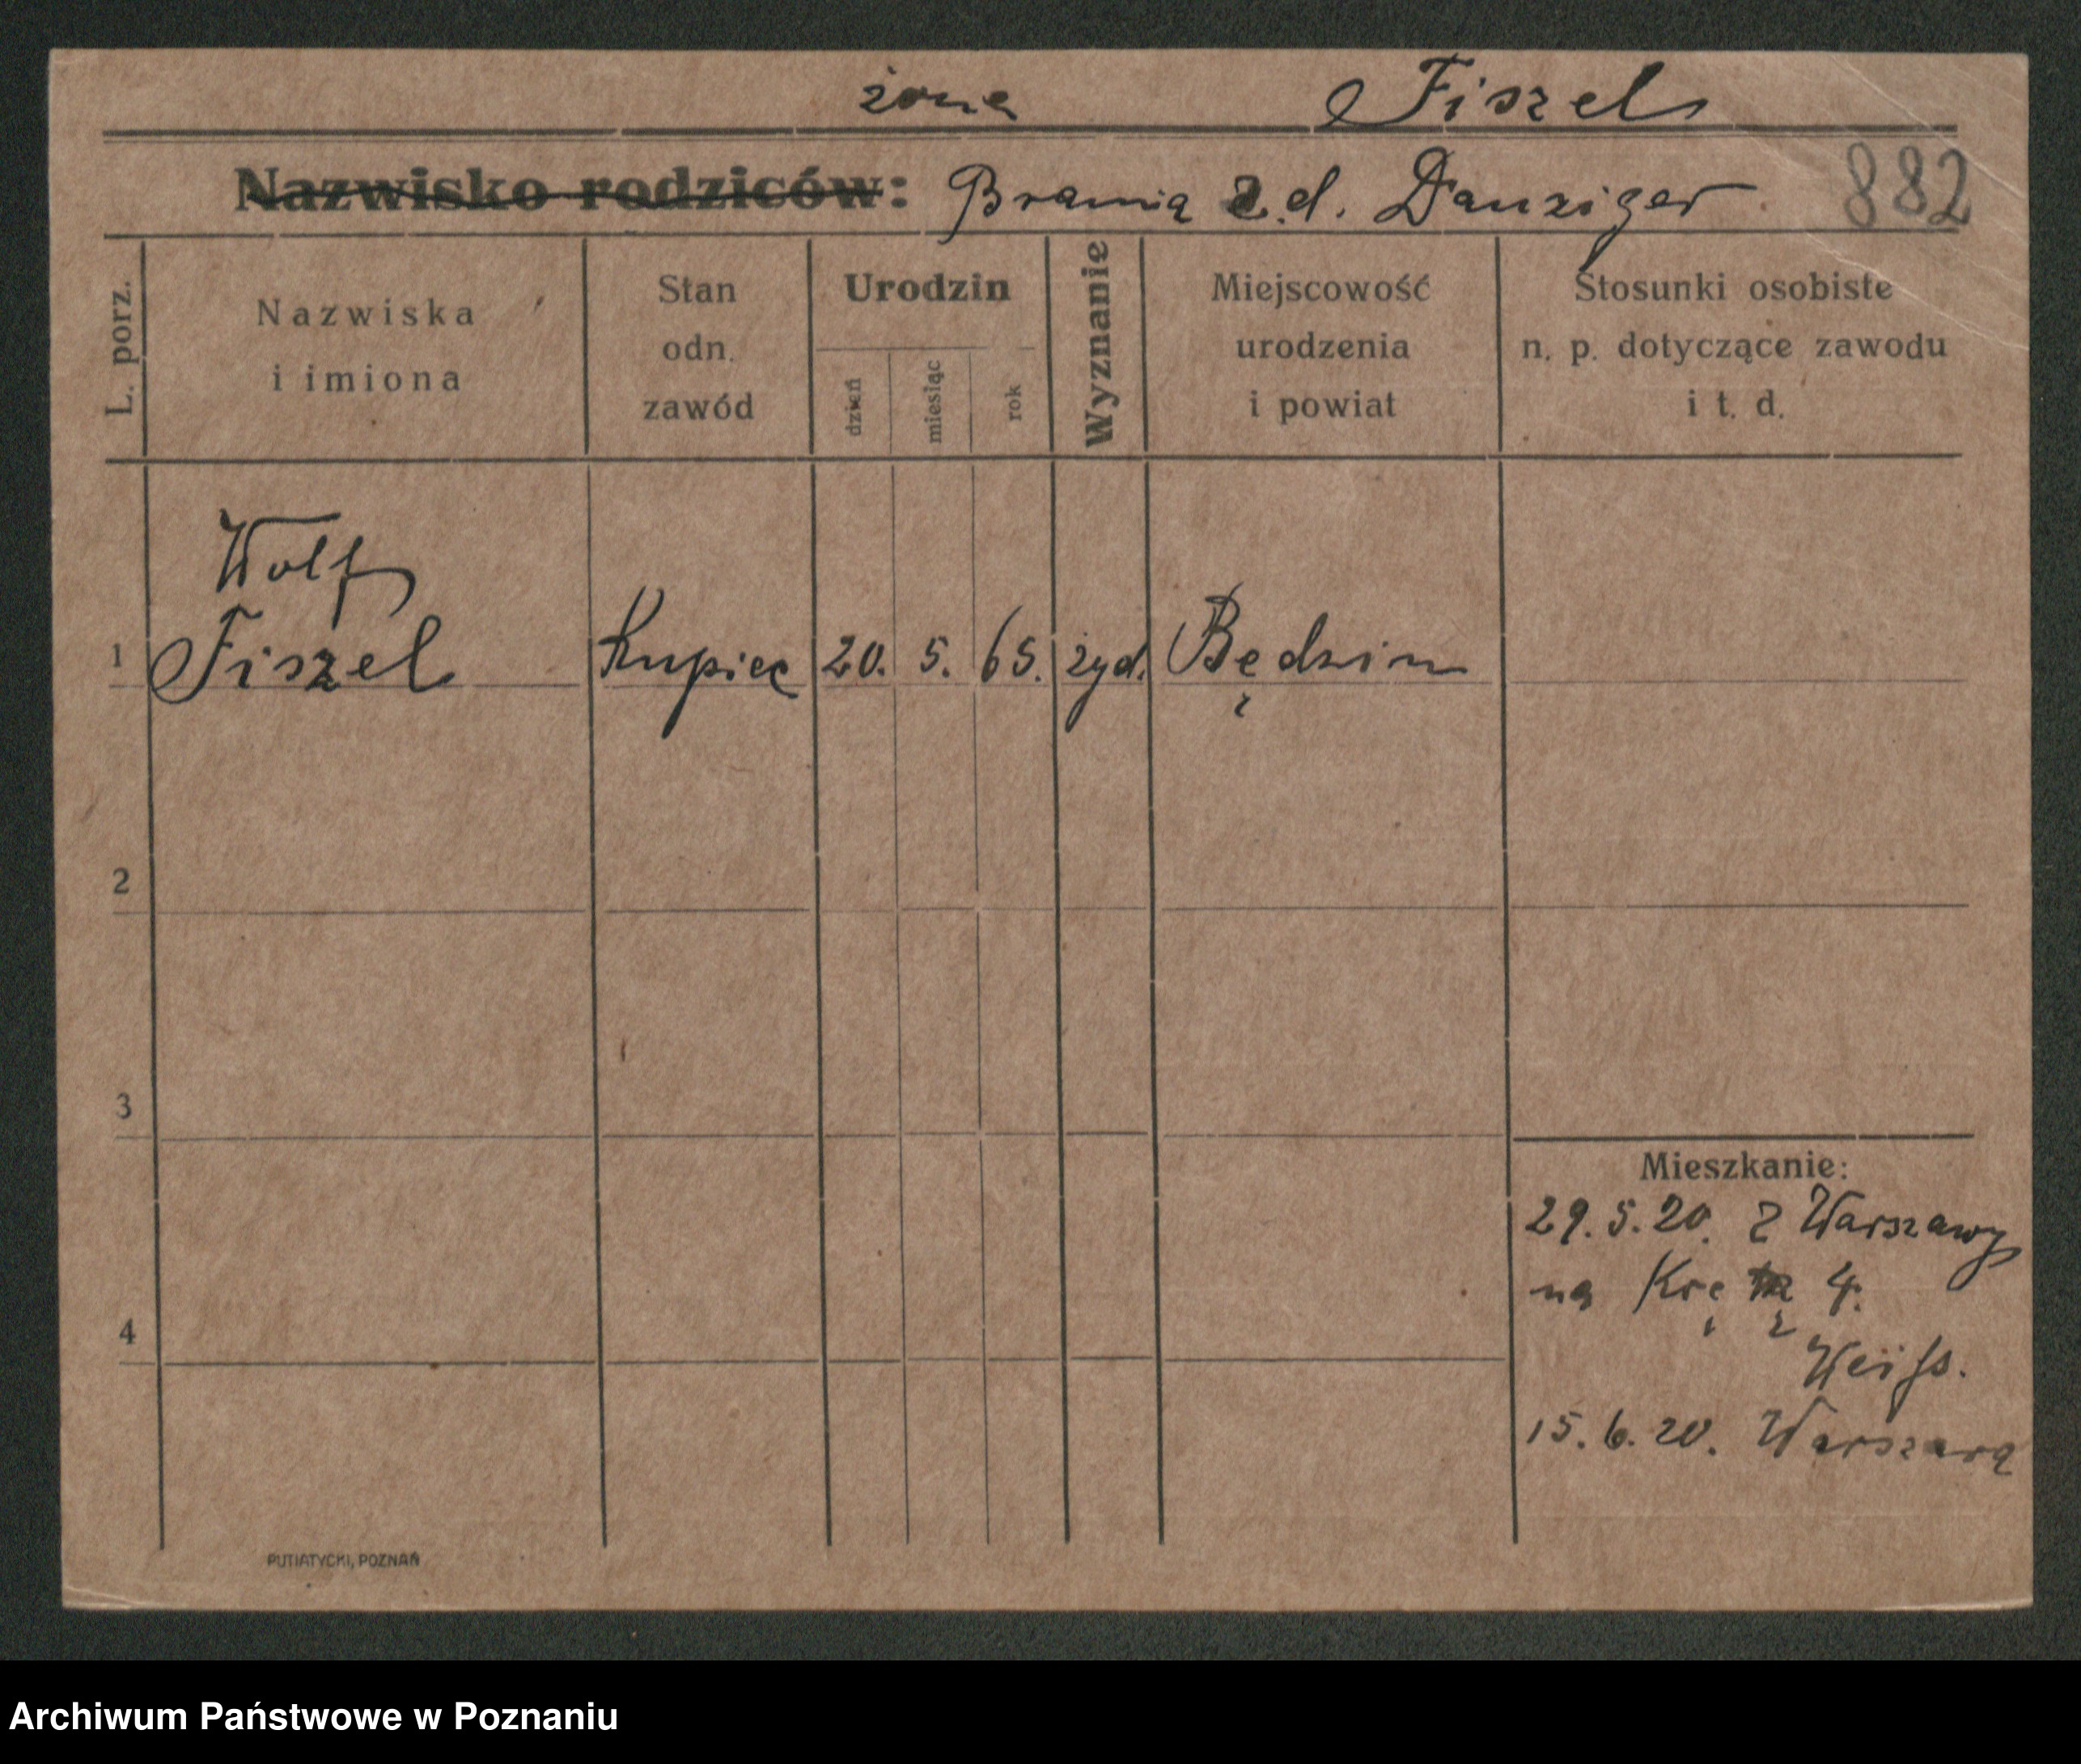 żona Fiszel
Nazwisko rodziców: Brania z.d. Danziger 882
L. porz.
Nazwiska
i imiona
Stan
odn.
zawód
Urodzin
dzień
miesiąc
rok
Wyznanie
Miejscowość
urodzenia
i powiat
Stosunki osobiste
n. p. dotyczące zawodu
i t. d.
Wolf
1 Fiszel Kupiec 20. 5. 65. żyd. Będzin
2
3
4
Mieszkanie:
29.5.20. z Warszawy
na 4.
Weiss.
15.6.20. Warszawa
PUTIATYCKI, POZNAŃ
Archiwum Państwowe w Poznaniu